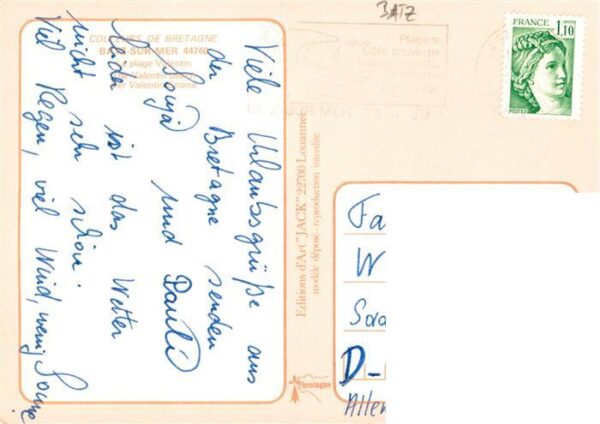 BATZ
COULEURS DE BRETAGNE
BATZ-SUR-MER 44740
La plage Valentin
The Valentin beach
Der Valentin Strand
Places
Côte sauvage
FRANCE
1,10
POSTES
Viele Urlaubsgrüße aus
der Bretagne senden
Sonja und Pauli
Leider ist das Wetter
nicht sehr schön.
Viel Regen, viel Wind, wenig Sonne
Editions d'Art "JACK" 22700 Louannec
modèle déposé - reproduction interdite
bretagne
Fa
W
D-
Allem